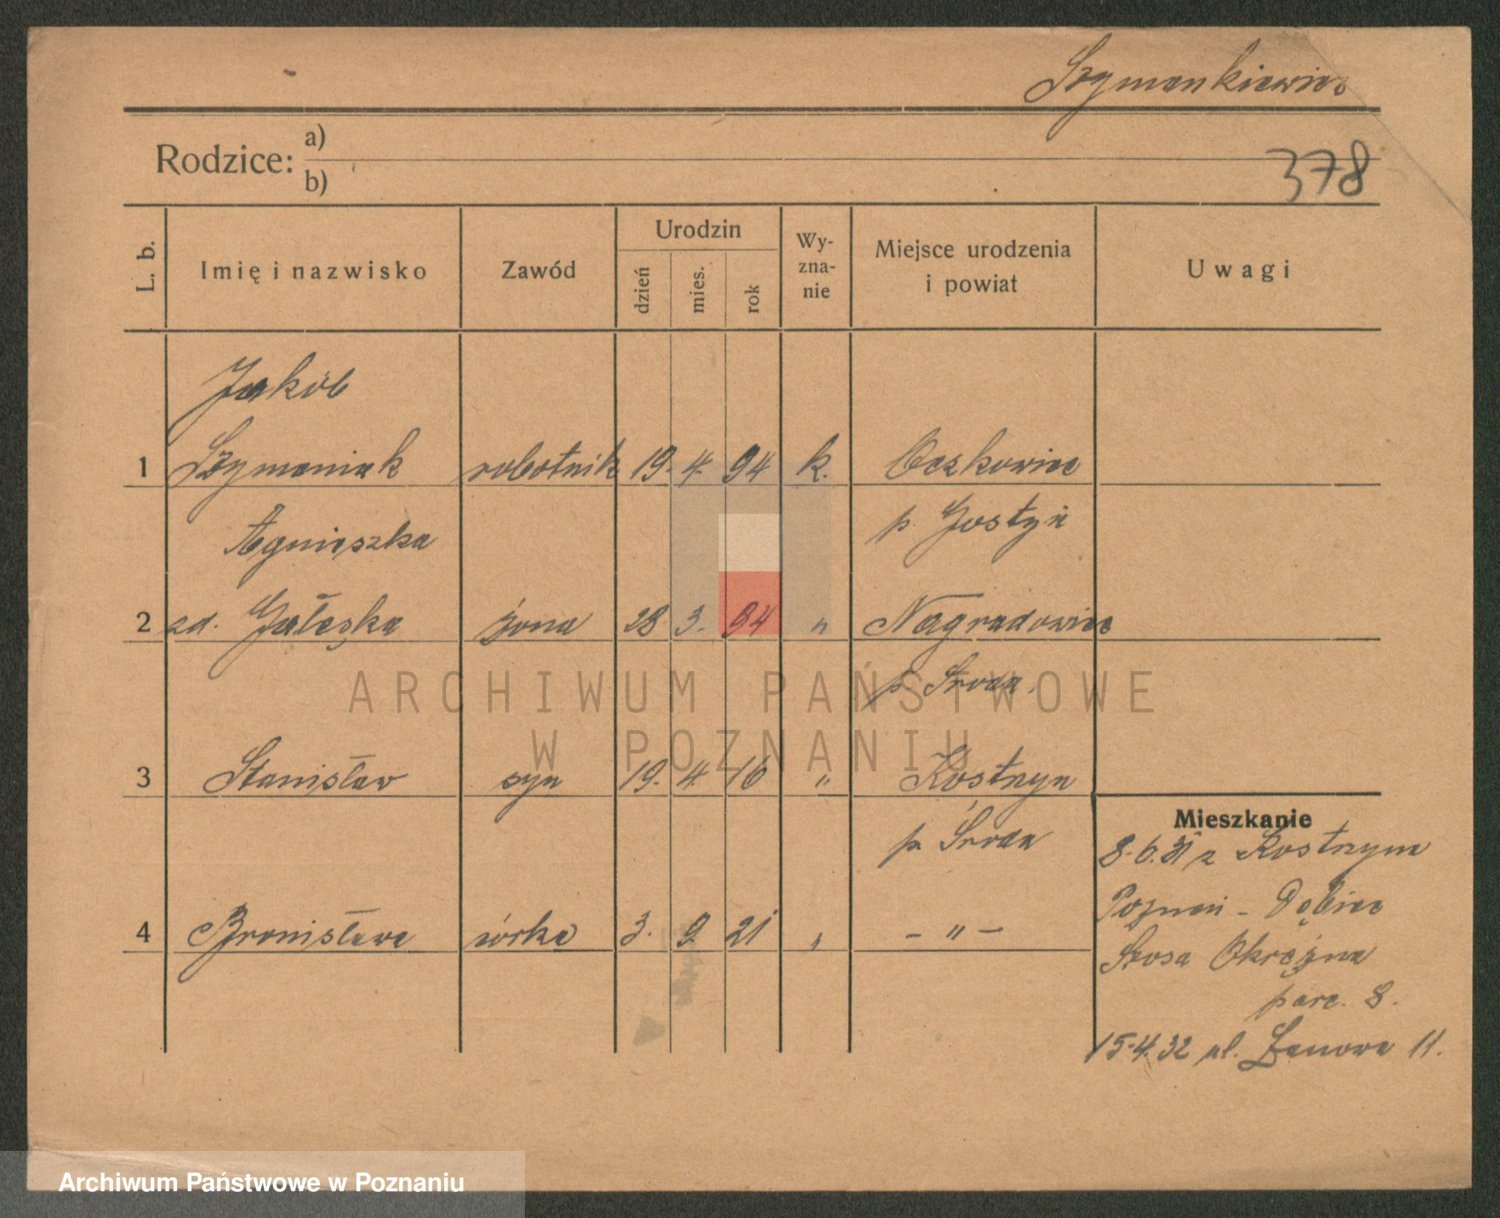 Szymankiewicz
Rodzice: a)
b)
378
L. b.
Imię i nazwisko
Zawód
Urodzin
dzień
mies.
rok
Wy-
zna-
nie
Miejsce urodzenia
i powiat
Uwagi
Jakób
1 Szymaniak robotnik 19. 4. 94 k.
p. Gostyń
Agnieszka
2 zd. żona 28 3. 94 " Nagradowice
p. Środa
ARCHIWUM PAŃSTWOWE
W POZNANIU
3 Stanisław syn 19. 4. 16 " Kostrzyn
p. Środa
4 Bronisława córka 3. 9. 21 " - " -
Mieszkanie
8.6.31 z Kostrzyna
Poznań - Dębiec
Szosa Okrężna
parc. 8.
15.4.32 ul. 11.
Archiwum Państwowe w Poznaniu